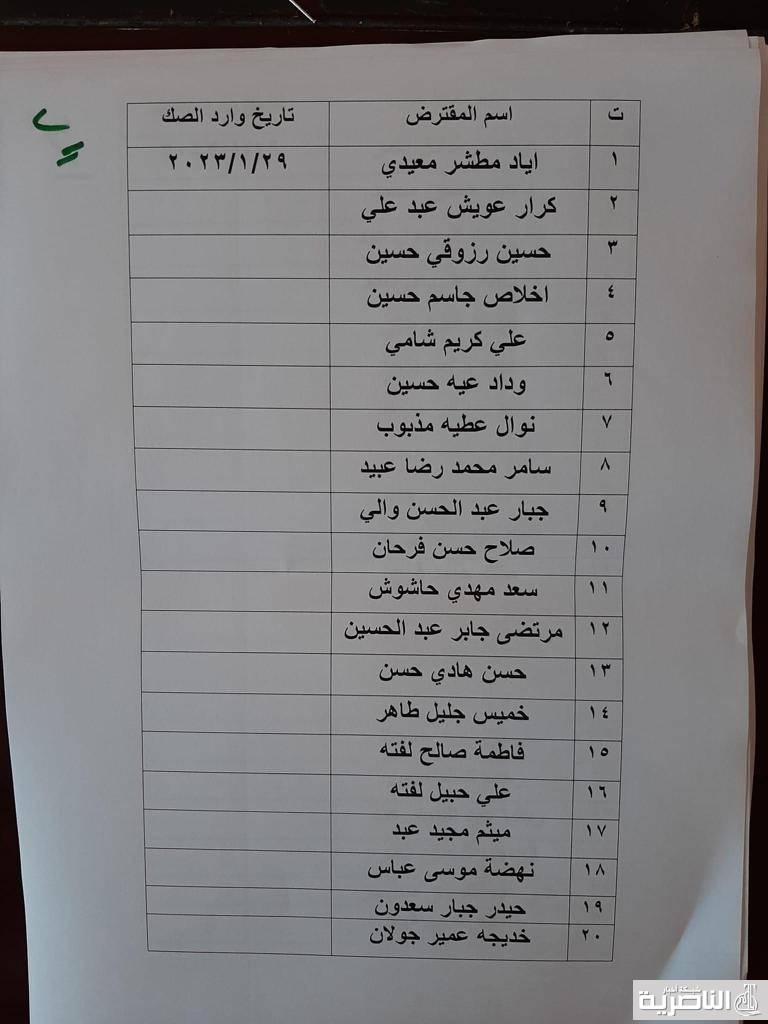 ت اسم المقترض تاريخ وارد الصك
١ اياد مطشر معيدي ٢٠٢٣/١/٢٩
٢ كرار عويش عبد علي
٣ حسين رزوقي حسين
٤ اخلاص جاسم حسين
٥ علي كريم شامي
٦ وداد عيه حسين
٧ نوال عطيه مذبوب
٨ سامر محمد رضا عبيد
٩ جبار عبد الحسن والي
١٠ صلاح حسن فرحان
١١ سعد مهدي حاشوش
١٢ مرتضى جابر عبد الحسين
١٣ حسن هادي حسن
١٤ خميس جليل طاهر
١٥ فاطمة صالح لفته
١٦ علي حبيل لفته
١٧ ميثم مجيد عبد
١٨ نهضة موسى عباس
١٩ حيدر جبار سعدون
٢٠ خديجه عمير جولان
شبكة أخبار
الناصرية